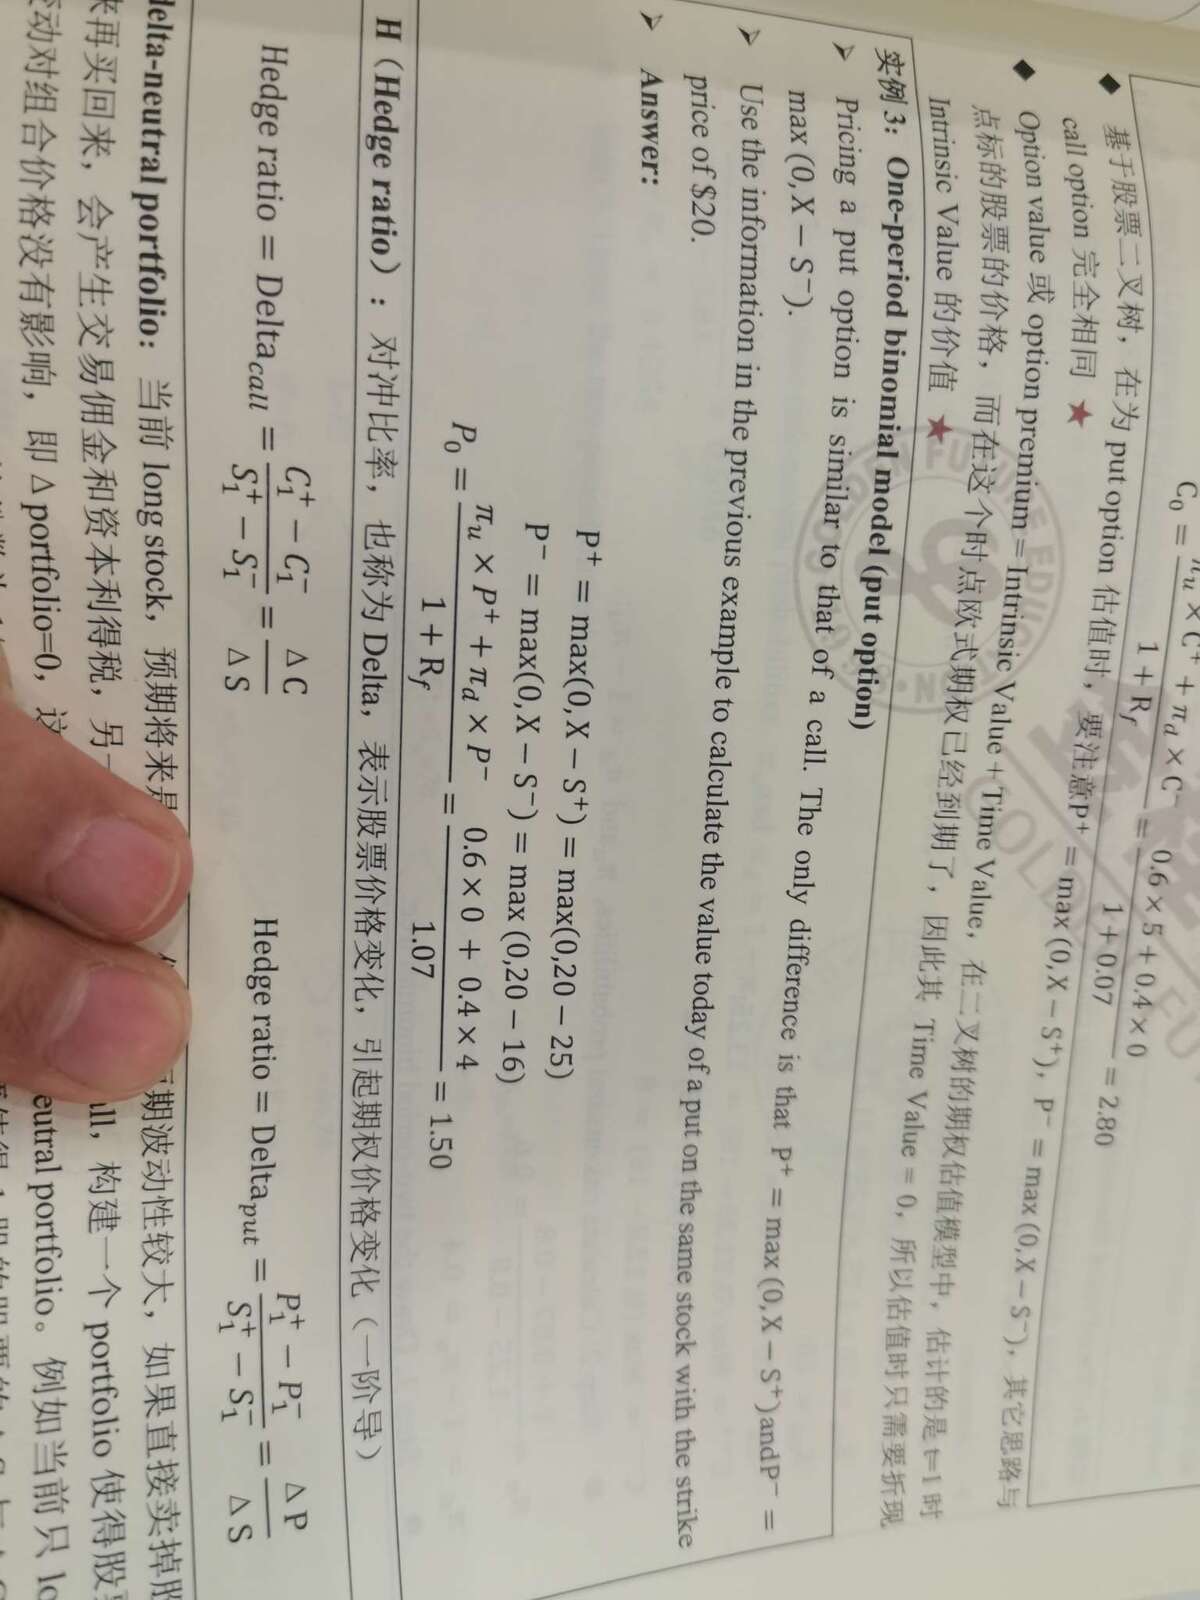 C₀ = (πᵤ × C⁺ + π_d × C⁻) / (1 + R_f) = (0.6 × 5 + 0.4 × 0) / (1 + 0.07) = 2.80
◆ 基于股票二叉树，在为 put option 估值时，要注意P⁺ = max (0, X − S⁺)，P⁻ = max (0, X − S⁻)，其它思路与
call option 完全相同 ★
◆ Option value 或 option premium = Intrinsic Value + Time Value，在二叉树的期权估值模型中，估计的是 t=1 时
点标的股票的价格，而在这个时点欧式期权已经到期了，因此其 Time Value = 0，所以估值时只需要折现
Intrinsic Value 的价值 ★
实例 3：One-period binomial model (put option)
➢ Pricing a put option is similar to that of a call. The only difference is that P⁺ = max (0, X − S⁺)and P⁻ =
max (0, X − S⁻).
➢ Use the information in the previous example to calculate the value today of a put on the same stock with the strike
price of $20.
➢ Answer:
P⁺ = max(0, X − S⁺) = max(0,20 − 25)
P⁻ = max(0, X − S⁻) = max (0,20 − 16)
P₀ = (πᵤ × P⁺ + π_d × P⁻) / (1 + R_f) = (0.6 × 0 + 0.4 × 4) / 1.07 = 1.50
H（Hedge ratio）：对冲比率，也称为 Delta，表示股票价格变化，引起期权价格变化（一阶导）
Hedge ratio = Delta_call = (C₁⁺ − C₁⁻) / (S₁⁺ − S₁⁻) = △C / △S Hedge ratio = Delta_put = (P₁⁺ − P₁⁻) / (S₁⁺ − S₁⁻) = △P / △S
delta-neutral portfolio：当前 long stock，预期将来是 期波动性较大，如果直接卖掉股
来再买回来，会产生交易佣金和资本利得税，另 all，构建一个 portfolio 使得股票
动对组合价格没有影响，即 △ portfolio=0，这 eutral portfolio。例如当前只 lo